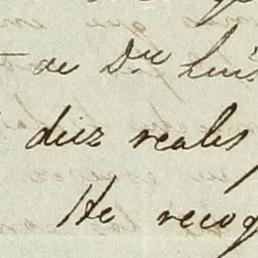 de Dn Luis
diez reales
He recog